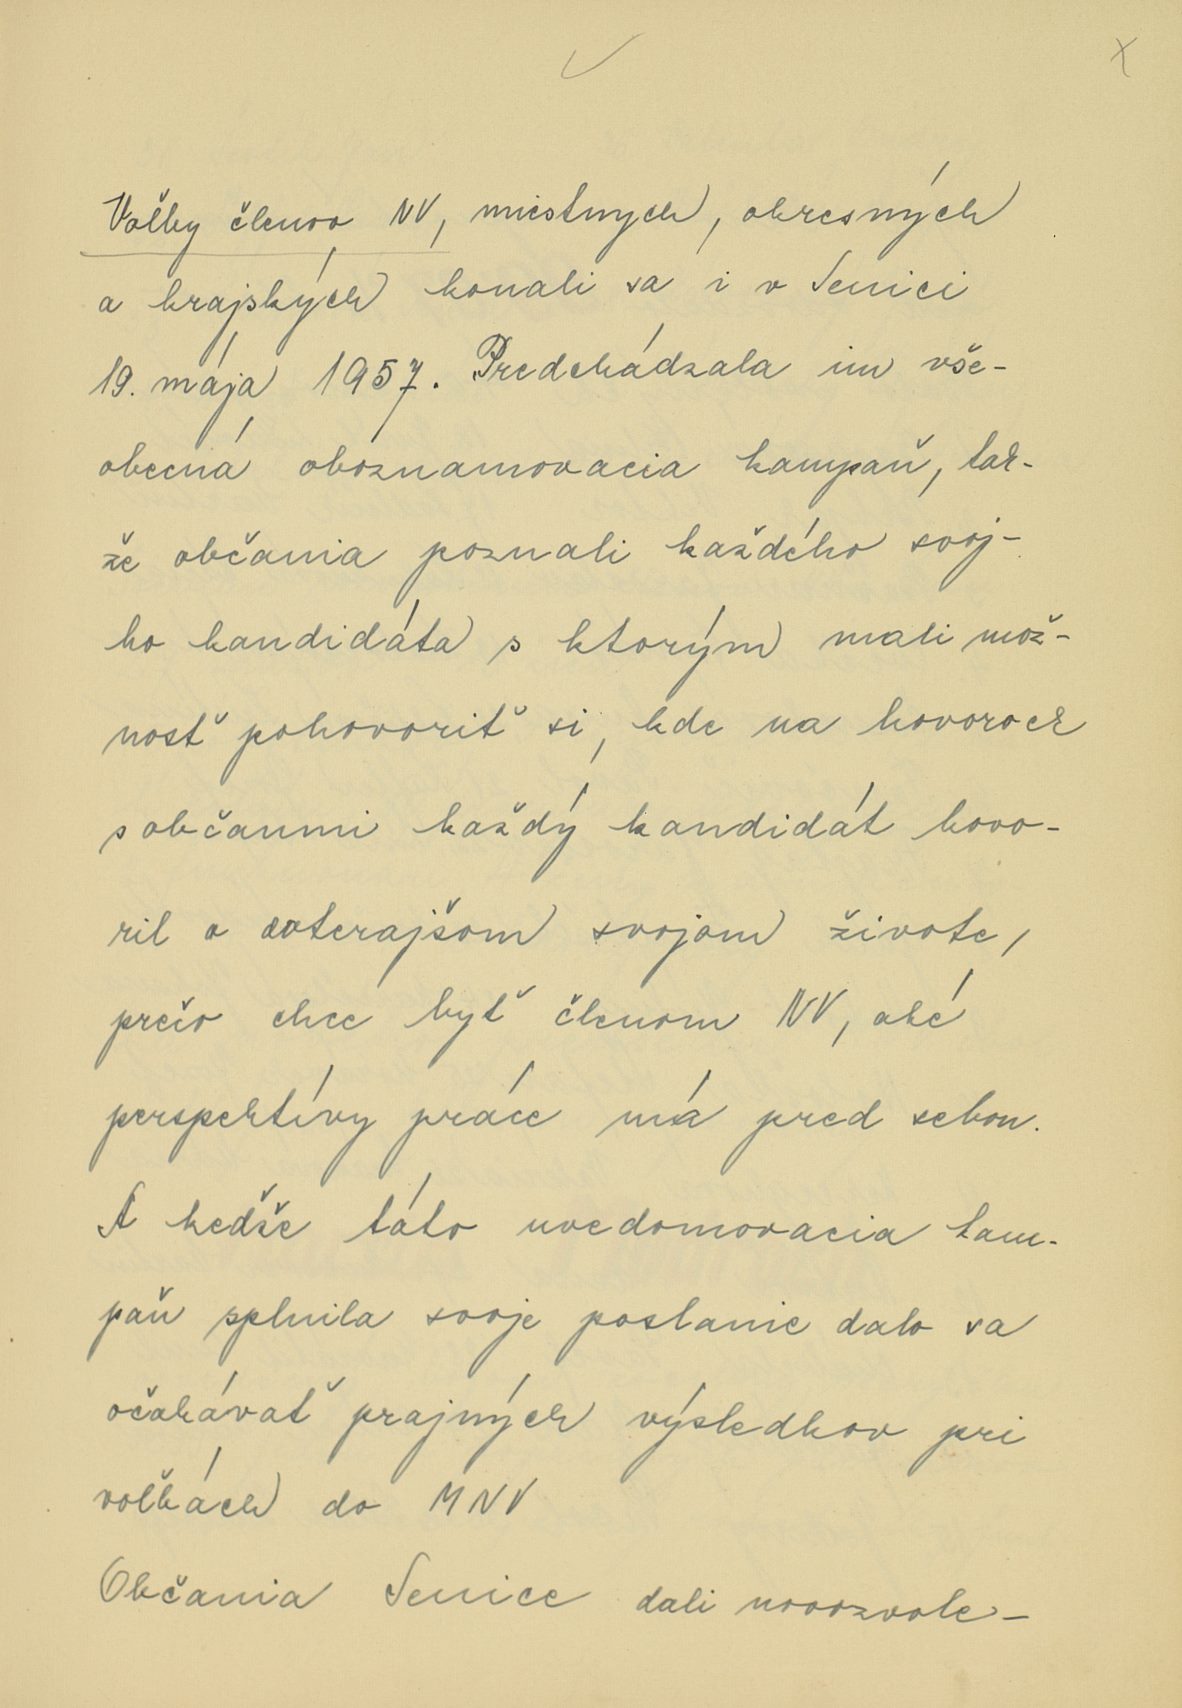 Voľby členov NV, miestnych, okresných
a krajských konali sa i v Senici
19. mája 1957. Predchádzala im vše-
obecná oboznamovacia kampaň, tak-
že občania poznali každého svoj-
ho kandidáta s ktorým mali mož-
nosť pohovoriť si, kde na hovoroch
s občanmi každý kandidát hovo-
ril o doterajšom svojom živote,
prečo chce byť členom NV, aké
perspektívy práce má pred sebou.
A keďže táto uvedomovacia kam-
paň splnila svoje poslanie dalo sa
očakávať prajných výsledkov pri
voľbách do MNV
Občania Senice dali novozvole-